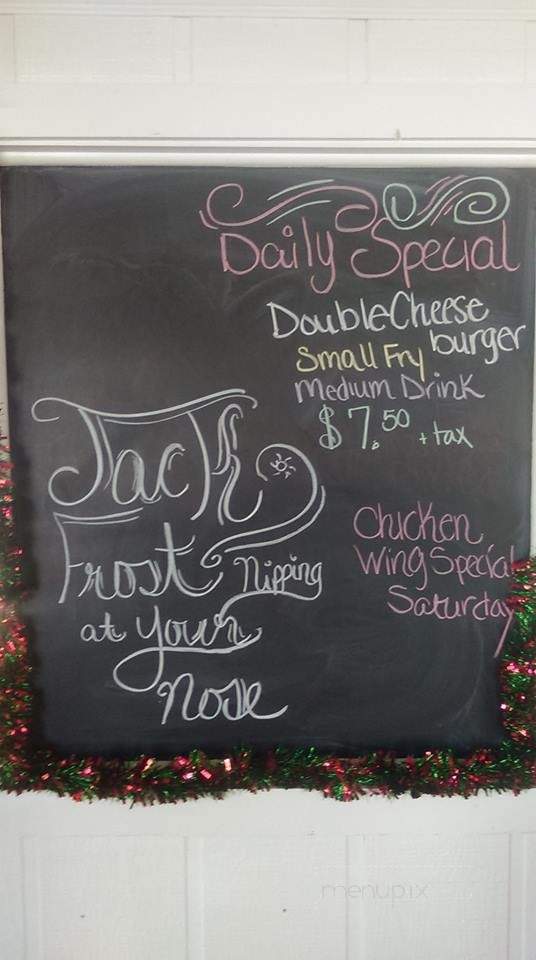 Daily Special
Double Cheese
burger
Small Fry
Medium Drink
$7.50 + tax
Jack
Frost Nipping
at your
nose
Chicken
Wing Special
Saturday
menupix